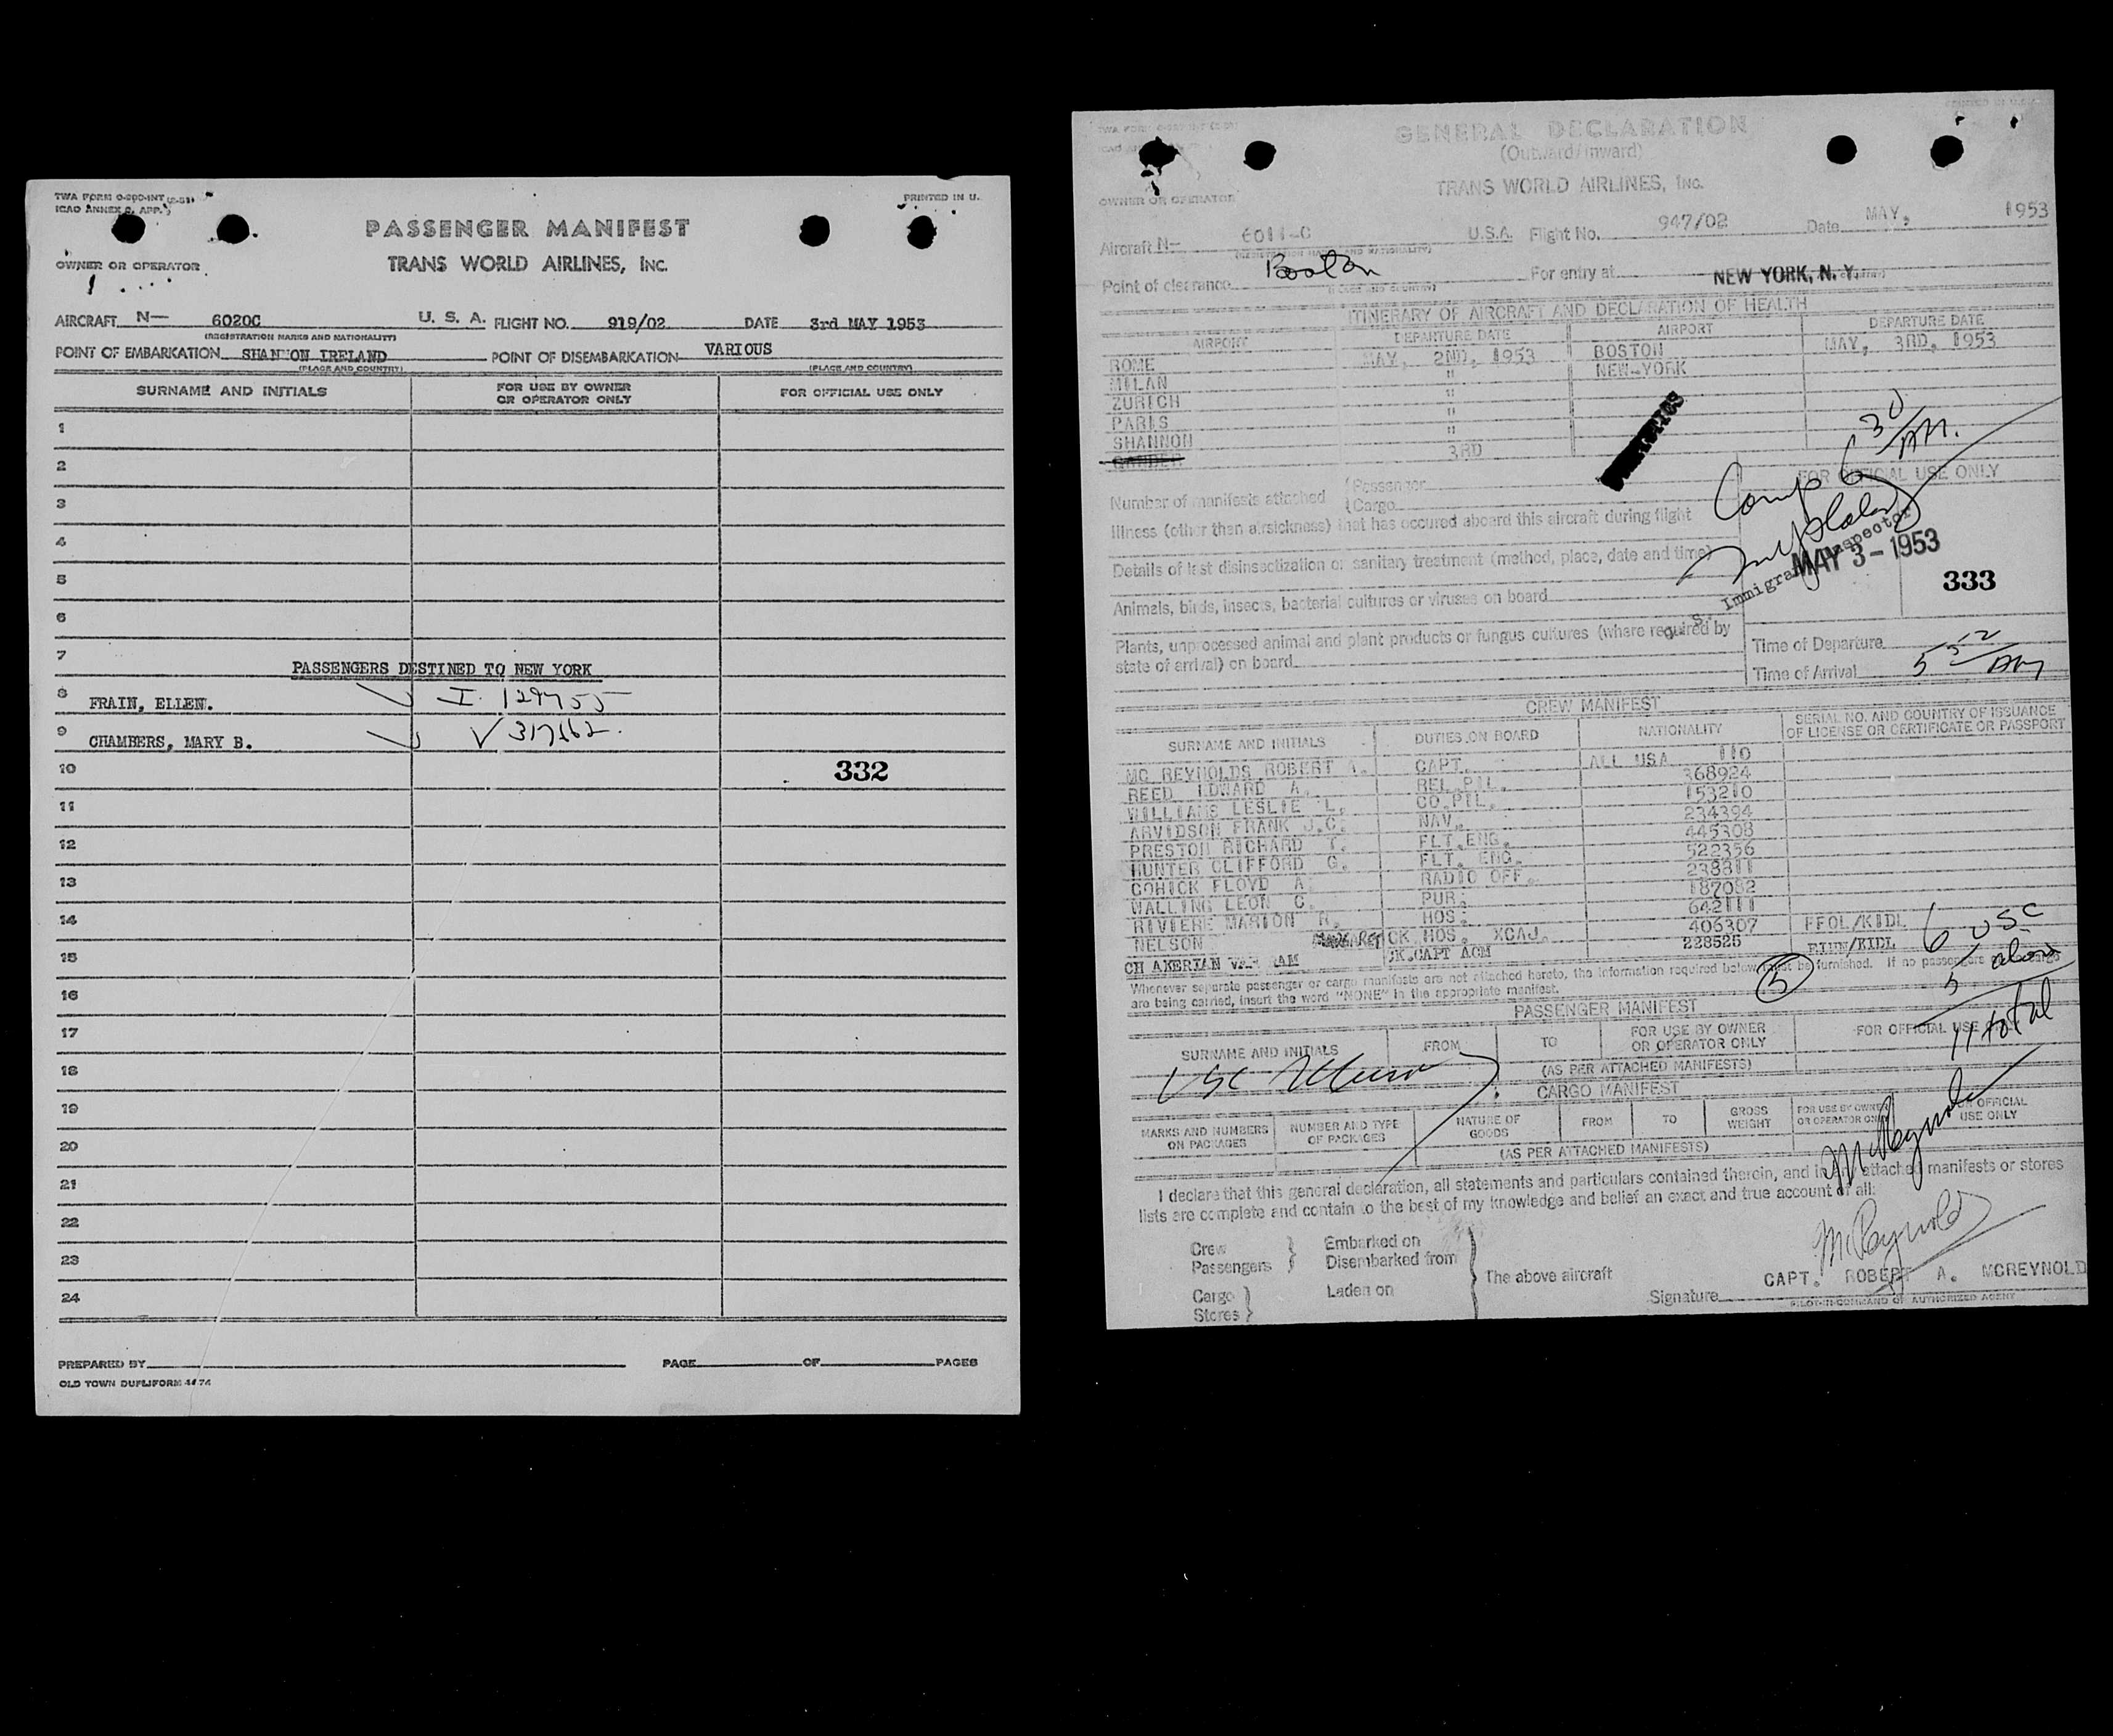 TWA FORM O-390-INT (2-51)
ICAO ANNEX 9, APP.
PRINTED IN U.
PASSENGER MANIFEST
OWNER OR OPERATOR
TRANS WORLD AIRLINES, INC.
AIRCRAFT N— 6020C U. S. A. FLIGHT NO. 919/02 DATE 3rd MAY 1953
(REGISTRATION MARKS AND NATIONALITY)
POINT OF EMBARKATION SHANNON IRELAND POINT OF DISEMBARKATION VARIOUS
(PLACE AND COUNTRY) (PLACE AND COUNTRY)
SURNAME AND INITIALS FOR USE BY OWNER OR OPERATOR ONLY FOR OFFICIAL USE ONLY
1
2
3
4
5
6
7
PASSENGERS DESTINED TO NEW YORK
8 FRAIN, ELLEN. I 129755
9 CHAMBERS, MARY B. V 317162.
10 332
11
12
13
14
15
16
17
18
19
20
21
22
23
24
PREPARED BY PAGE OF PAGES
OLD TOWN DUPLIFORM
GENERAL DECLARATION
(Outward/Inward)
TRANS WORLD AIRLINES, INC.
OWNER OR OPERATOR
Aircraft N— 6011-C U.S.A. Flight No. 947/02 Date MAY, 1953
(REGISTRATION MARKS AND NATIONALITY)
Point of clearance Boston For entry at NEW YORK, N. Y.
(PLACE AND COUNTRY)
ITINERARY OF AIRCRAFT AND DECLARATION OF HEALTH
AIRPORT DEPARTURE DATE AIRPORT DEPARTURE DATE
ROME MAY, 2ND, 1953 BOSTON MAY, 3RD, 1953
MILAN " NEW-YORK
ZURICH "
PARIS "
SHANNON "
GANDER 3RD
Comp 6 30 AM.
Number of manifests attached (Passenger
(Cargo
FOR OFFICIAL USE ONLY
Illness (other than airsickness) that has occured aboard this aircraft during flight
Details of last disinsectization or sanitary treatment (method, place, date and time)
U. S. Immigrant Inspector
MAY 3 - 1953
333
Animals, birds, insects, bacterial cultures or viruses on board
Plants, unprocessed animal and plant products or fungus cultures (where required by
state of arrival) on board
Time of Departure
Time of Arrival 5 52 AM
CREW MANIFEST
SURNAME AND INITIALS DUTIES ON BOARD NATIONALITY SERIAL NO. AND COUNTRY OF ISSUANCE OF LICENSE OR CERTIFICATE OR PASSPORT
MC REYNOLDS ROBERT A. CAPT. ALL USA 110
REED EDWARD A. REL.PIL. 368924
WILLIAMS LESLIE L. CO.PIL. 153210
ARVIDSON FRANK J.C. NAV. 234394
PRESTON RICHARD T. FLT.ENG. 445308
HUNTER CLIFFORD G. FLT. ENG. 522356
COHICK FLOYD A. RADIO OFF. 238811
WALLING LEON C. PUR. 187082
RIVIERE MARION N. HOS. 642111
NELSON MARGARET CK HOS. XCAJ. 406307 FFOL/KIDL
CK.CAPT ACM 228525
6 USC
5 aliens
11 total
Whenever separate passenger or cargo manifests are not attached hereto, the information required below must be furnished. If no passengers or cargo
are being carried, insert the word "NONE" in the appropriate manifest.
5
PASSENGER MANIFEST
SURNAME AND INITIALS FROM TO FOR USE BY OWNER OR OPERATOR ONLY FOR OFFICIAL USE
(AS PER ATTACHED MANIFESTS)
CARGO MANIFEST
MARKS AND NUMBERS ON PACKAGES NUMBER AND TYPE OF PACKAGES NATURE OF GOODS FROM TO GROSS WEIGHT FOR USE BY OWNER OR OPERATOR ONLY FOR OFFICIAL USE ONLY
(AS PER ATTACHED MANIFESTS)
McReynolds
I declare that this general declaration, all statements and particulars contained therein, and in any attached manifests or stores
lists are complete and contain to the best of my knowledge and belief an exact and true account of all:
Crew Embarked on
Passengers Disembarked from
The above aircraft
Cargo Laden on
Stores
McReynolds
CAPT. ROBERT A. MCREYNOLD
Signature
PILOT-IN-COMMAND OF AUTHORIZED AGENT